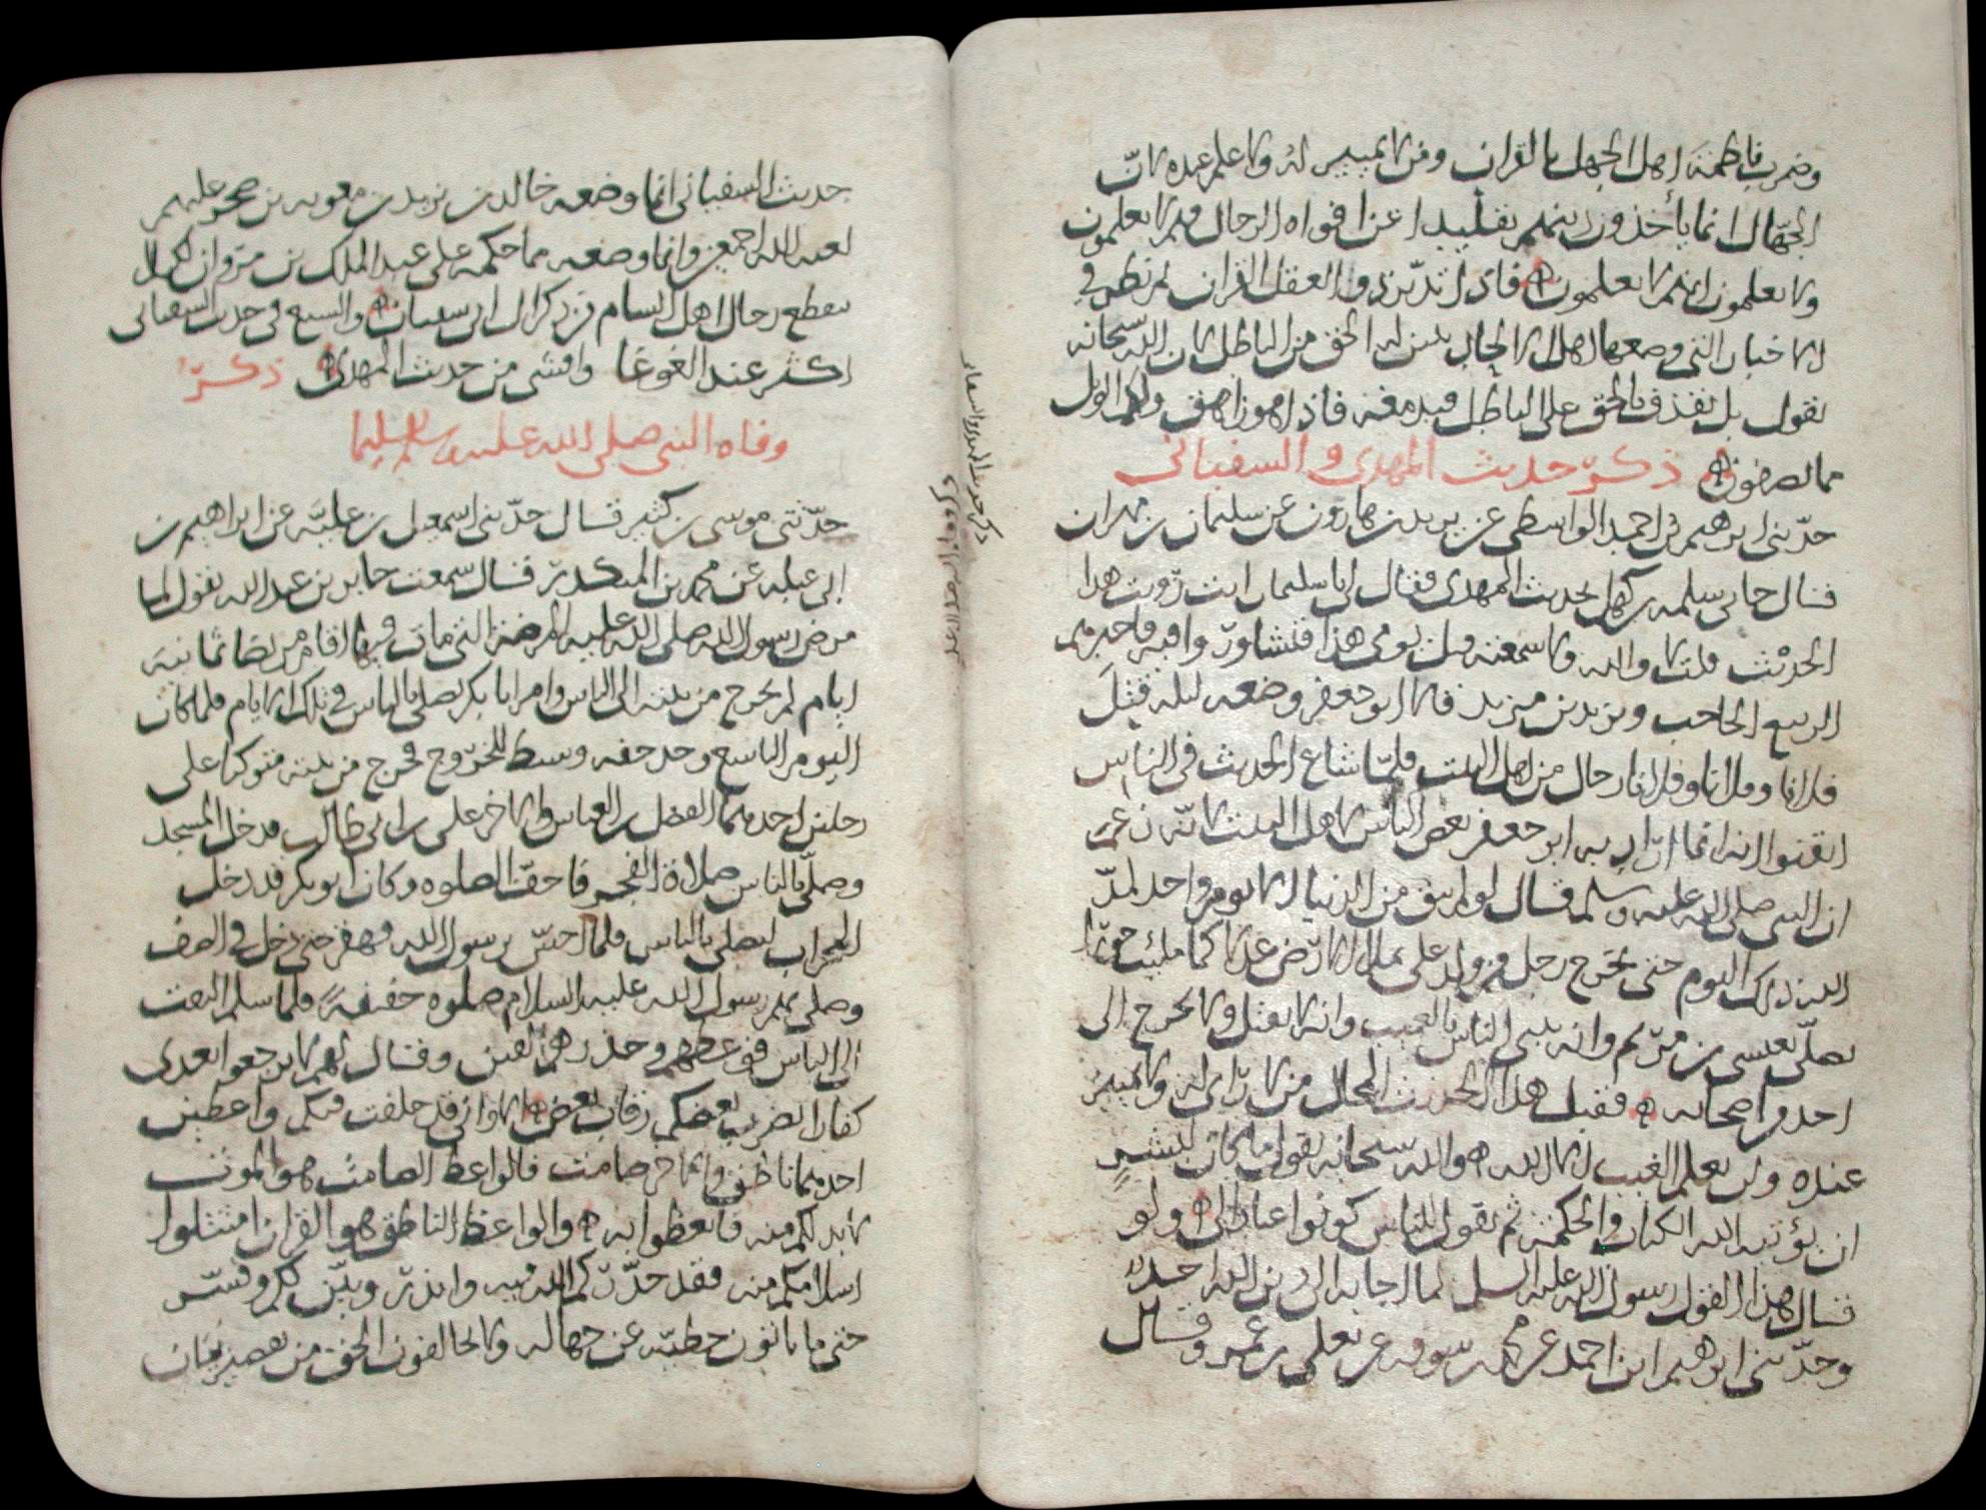 وضرب فاطمة اهل الجهل بالقران ومن لا تمييز له ولا علم عنده لان
الجهال انما يأخذون دينهم تقليدا عن افواه الرجال وهم لا يعلمون
ولا يعلمون انهم لا يعلمون فاذا تدبر ذوا العقل القران ثم نظر في
الاخبار التي وضعها اهل تبين له الحق من الباطل لان الله سبحانه
يقول بل نقذف بالحق على الباطل فيدمغه فاذا هو زاهق ولكم الويل
مما تصفون ذكر حديث المهدي والسفياني
حدثني ابرهيم بن احمد الواسطي عن يزيد بن هارون عن سليمان بن مهران
قال جاني سلمه بن كهيل بحديث المهدي فقال ابا سليمان انت رويت هذا
الحديث قلت لا والله ولا سمعته قبل يومي هذا فتشاور وافيه فاخبرهم
الربيع الحاجب ويزيد بن مزيد قالا ابو جعفر وضعه ليله قتل
فلانا وفلانا وفلانا رجال من اهل البيت فلما شاع الحديث في الناس
ايقنوا انه انما اراد به ابو جعفر بعض الناس لاهل البيت لانه زعم
ان النبي صلى الله عليه وسلم قال لو لم يبق من الدنيا الا يوم واحد لمد
الله ذلك اليوم حتى يخرج رجل من ولد علي يملا الارض عدلا كما ملئت جورا
يصلي بعيسى بن مريم وانه ينبي الناس بالغيب وانه لا يقتل ولا يخرج الى
احد من اصحابه فقبل هذا الحديث المحال من لا راي له ولا تمييز
عنده ولن يعلم الغيب الا الله هو والله سبحانه يقول ما كان لبشر
ان يؤتيه الله الكتاب والحكمة ثم يقول للناس كونوا عبادا لي ولو
قال هذا القول رسول الله عليه السلم لما اجابه الى دين الله احد
وحدثني ابرهيم ابن احمد عن محمد بن سوقه عن يعلي بن عمر وقال
ذكر حديث المهدي والسفياني
حديث السفياني انما وضعه خالد بن يزيد بن معويه بن صخر عليهم
لعنه الله اجمعين وانما وضعه مما حكمه على عبد الملك بن مروان لكيلا
يقطع رجال اهل الشام من ذكر ال ابي سفيان والشيع في حديث السفياني
اكثر عند الغوغا وافشى من حديث المهدي ذكر
وفاه النبي صلى الله عليه وسلم تسليما
حدثني موسى بن كثير قال حدثني اسمعيل بن علية عن ابراهيم بن
ابي عبله عن محمد بن المنكدر قال سمعت جابر بن عبد الله يقول لما
مرض رسول الله صلى الله عليه المرضة التي مات فيها اقام مريضا ثمانية
ايام لم يخرج من بيته الى الناس وامر ابا بكر يصلي بالناس في تلك الايام فلما كان
اليوم التاسع وجد خفه وبسط للخروج فخرج من بيته متوكيا على
رجلين احدهما الفضل بن العباس والاخر علي بن ابي طالب فدخل المسجد
وصلى بالناس صلاة الفجر فاحق الصلوه وكان ابو بكر قد دخل
المحراب ليصلي بالناس فلما احس برسول الله قهقر حتى دخل في الصف
وصلى بهم رسول الله عليه السلام صلوه خفيفة فلما سلم التفت
الى الناس فوعظهم وحذرهم الفتن وقال لهم لا ترجعوا بعدي
كفارا يضرب بعضكم رقاب بعض الا واني قد خلفت فيكم واعظين
احدهما ناطق والاخر صامت فالواعظ الصامت هو الموت
لا بد لكم منه فاتعظوا به والواعظ الناطق هو القران امتثلوا
اسلامكم منه فقد حذركم الله فيه وانذر وبين لكم وفسر
حتى ما تاتون خطية عن جهاله ولا تخالفون الحق من نقصير بيان